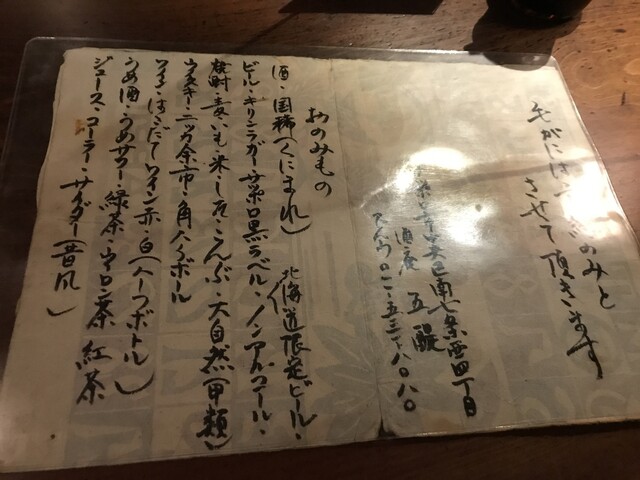 毛がには
のみと
させて頂きます
区南七条西四丁目
酒庵 五醍
でんわ 五三一・八〇八〇
おのみもの
酒・国稀(くにまれ) 北海道限定ビール・
ビール・キリンラガー・サッポロ黒ラベル・ノンアルコール・
焼酎・麦・いも・米・しそ・こんぶ・大自然(甲類)
ウイスキー・ニッカ余市・角ハイボール
ワイン・はこだてワイン赤・白(ハーフボトル)
うめ酒・うめサワー・緑茶・ウーロン茶 紅茶
ジュース・コーラー・サイダー(昔風)